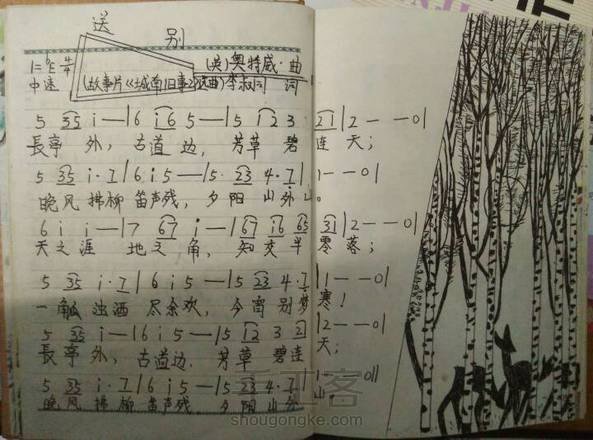 送 别
1=♭E 4/4 (美)奥特威·曲
中速 (故事片《城南旧事》选曲) 李叔同 词
5 35 i — | 6 i6 5 — | 5 12 3 21 | 2 — — 0 |
長亭 外, 古道 边, 芳草 碧 连 天;
5 35 i · 7 | 6 i 5 — | 5 · 23 4 · 7 | 1 — — 0 |
晚风 拂柳 笛声残, 夕阳 山外山。
6 i i — | 7 67 i — | 67 i6 65 31 | 2 — — 0 |
天之涯 地之角, 知交半 零落;
5 35 i · 7 | 6 i 5 — | 5 23 4 · 7 | 1 — — 0 |
一觚 浊酒 尽余欢, 今宵 别梦 寒!
5 35 i — | 6 i 5 — | 5 12 3 21 | 2 — — 0 |
長亭 外, 古道边, 芳草 碧连 天;
5 35 i · 7 | 6 i 5 — | 5 23 4 · 7 | 1 — — 0 ||
晚风 拂柳 笛声残 夕阳 山外 山
shougongke.com